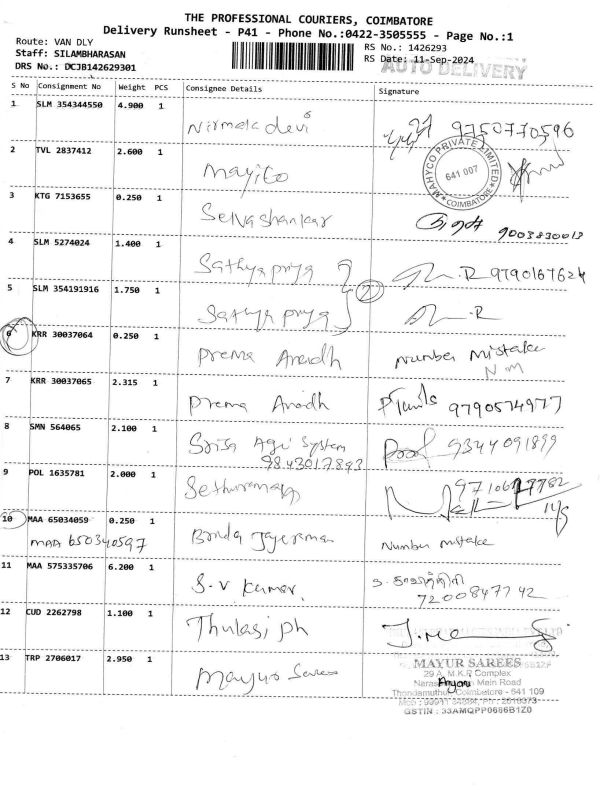 THE PROFESSIONAL COURIERS, COIMBATORE
Delivery Runsheet - P41 - Phone No.:0422-3505555 - Page No.:1
Route: VAN DLY
Staff: SILAMBHARASAN
DRS No.: DCJB142629301
RS No.: 1426293
RS Date: 11-Sep-2024
AUTO DELIVERY
S No Consignment No Weight PCS Consignee Details Signature
1 SLM 354344550 4.900 1 Nirmala devi 9750770596
2 TVL 2837412 2.600 1 Mayico
MAHYCO PRIVATE LIMITED
641 007
COIMBATORE
3 KTG 7153655 0.250 1 Selvashankar 9003830013
4 SLM 5274024 1.400 1 Sathya priya R 9790167624
2
5 SLM 354191916 1.750 1 Sathya priya R
6 KRR 30037064 0.250 1 Prema Anadh Number Mistake
N M
7 KRR 30037065 2.315 1 Prema Anadh 9790574977
8 SMN 564065 2.100 1 Srisa Agri System 9344091899
9843017893
9 POL 1635781 2.000 1
10 MAA 65034059 0.250 1 Number mistake
MAA 650340597
11 MAA 575335706 6.200 1 S.V Kumar.
7200847742
12 CUD 2262798 1.100 1 Thulasi ph
13 TRP 2706017 2.950 1 Mayur Sarees
MAYUR SAREES
29 A, M.K.P. Complex
Main Road
Coimbatore - 641 109
GSTIN : 33AMQPP0686B1Z0